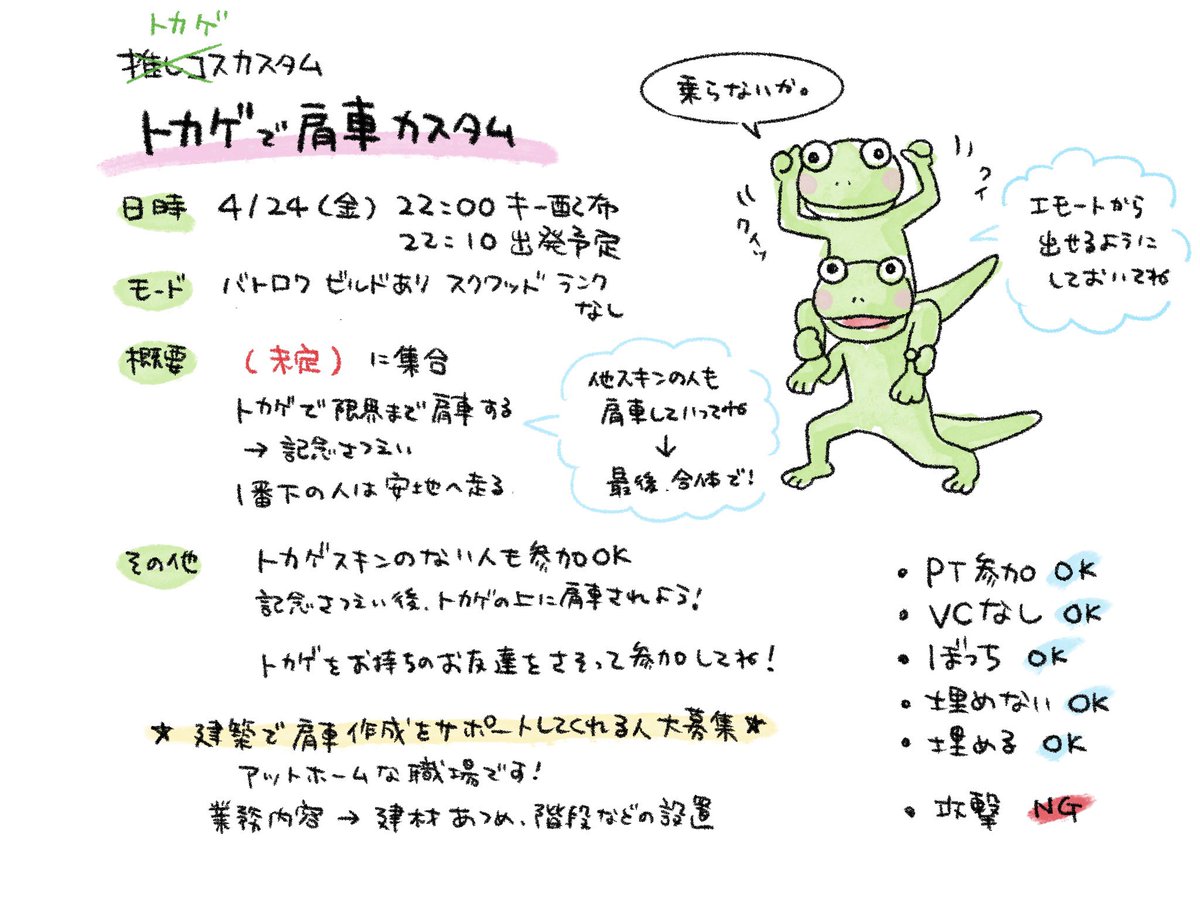 トカゲ
推しコスカスタム
トカゲで肩車カスタム
日時 4/24(金) 22:00 キー配布
22:10 出発予定
モード バトロワ ビルドあり スクワッド ランク
なし
概要 (未定) に集合
トカゲで限界まで肩車する
→ 記念さつえい
1番下の人は安地へ走る
他スキンの人も
肩車していってね
↓
最後、合体で!
乗らないか。
クイッ
クイ
エモートから
出せるように
しておいてね
その他 トカゲスキンのない人も参加OK
記念さつえい後、トカゲの上に肩車されよう!
トカゲをお持ちのお友達をさそって参加してね!
★ 建築で肩車作成をサポートしてくれる人大募集 ★
アットホームな職場です!
業務内容 → 建材あつめ、階段などの設置
・PT参加 OK
・VCなし OK
・ぼっち OK
・埋めない OK
・埋める OK
・攻撃 NG